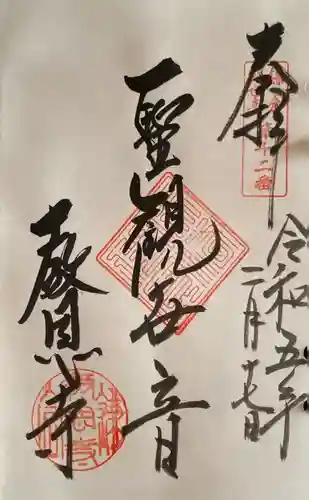 奉拝
十二番
令和五年
二月十七日
聖観世音
教恩寺